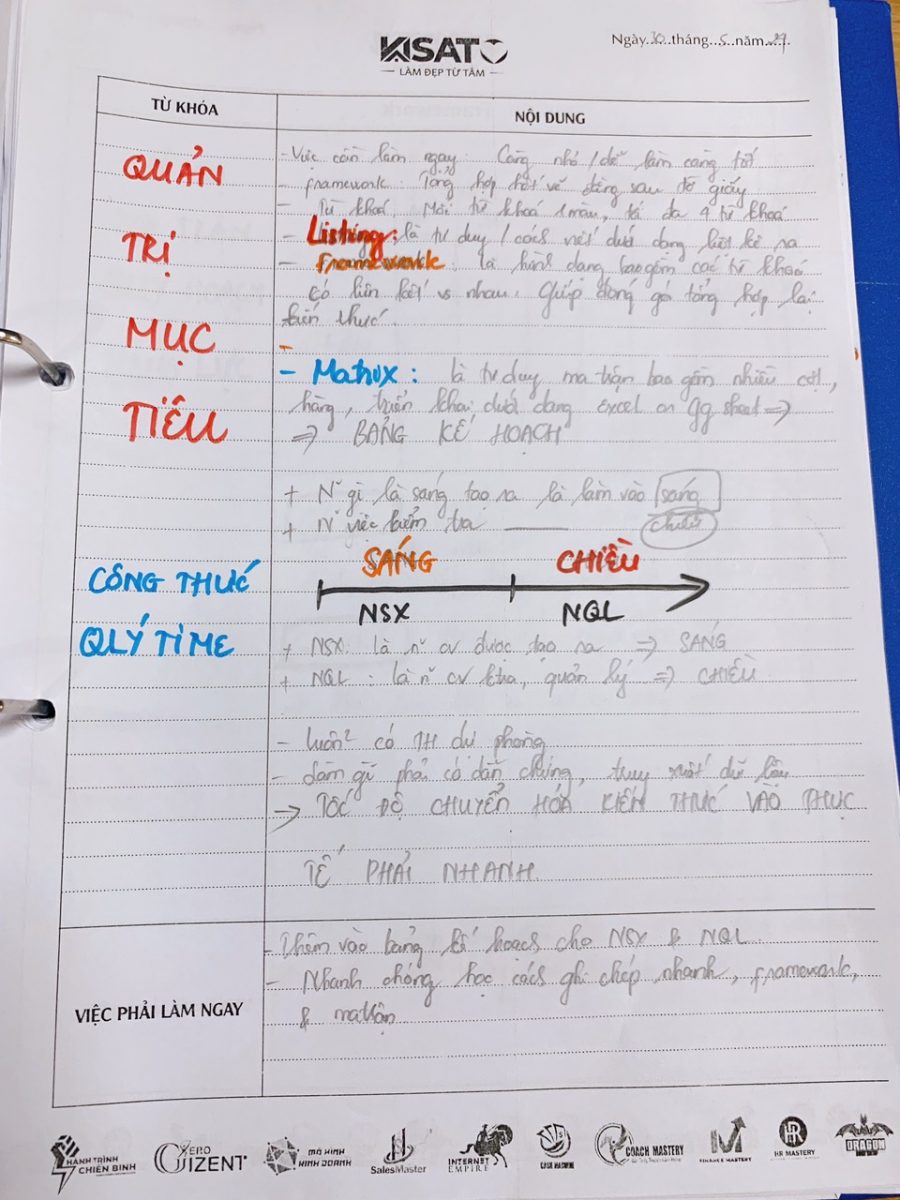 KISATO
LÀM ĐẸP TỪ TÂM
Ngày..tháng..5..năm..
TỪ KHÓA
NỘI DUNG
QUẢN
TRỊ
MỤC
TIÊU
- Việc cần làm ngay: Càng nhỏ / dễ làm càng tốt
- framework: Tổng hợp hết về đằng sau tờ giấy
- Từ khoá. Mỗi từ khoá 1 màu, tối đa 4 từ khoá
- Listing: là tư duy / cách viết dưới dạng liệt kê ra
- Framework: là hình dạng bao gồm các từ khoá
có liên kết vs nhau. Giúp đóng gói tổng hợp lại
kiến thức.
-
- Matrix: là tư duy ma trận bao gồm nhiều cột,
hàng, triển khai dưới dạng excel or gg sheet =>
=> BẢNG KẾ HOẠCH
+ N~ gì là sáng tạo ra là làm vào sáng
+ N~ việc kiểm tra ——— chiều
CÔNG THỨC
QLÝ TIME
SÁNG CHIỀU
NSX NQL
+ NSX: là n~ cv được tạo ra => SÁNG
+ NQL: là n~ cv ktra, quản lý => CHIỀU
- luôn² có TH dự phòng
- Làm gì phải có dẫn chứng, truy xuất dữ liệu
-> TỐC ĐỘ CHUYỂN HÓA KIẾN THỨC VÀO THỰC
TẾ PHẢI NHANH.
VIỆC PHẢI LÀM NGAY
- Thêm vào bảng kế hoạch cho NSX & NQL
- Nhanh chóng học cách ghi chép nhanh, framework,
& matrận
HÀNH TRÌNH CHIẾN BINH
ZERO GIZENT
MÔ HÌNH KINH DOANH
SalesMaster
INTERNET EMPIRE
COACH MASTERY
FINANCE MASTERY
HR MASTERY
DRAGON